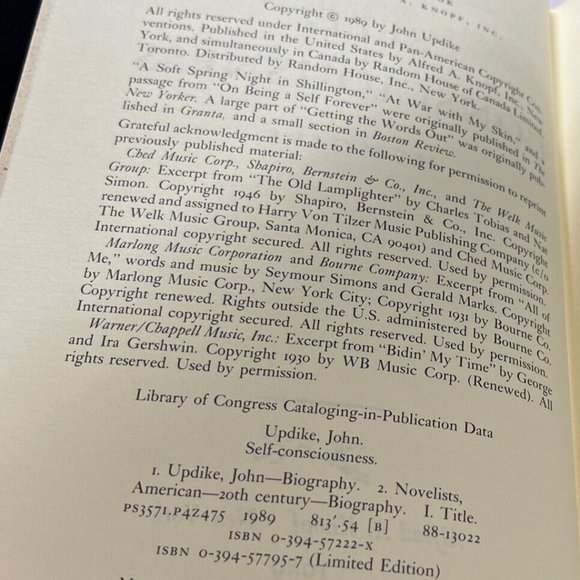 OOK
A. KNOPF, INC.
Copyright © 1989 by John Updike
All rights reserved under International and Pan-American Copyright Con-
ventions. Published in the United States by Alfred A. Knopf, Inc., New
York, and simultaneously in Canada by Random House of Canada Limited,
Toronto. Distributed by Random House, Inc., New York.
"A Soft Spring Night in Shillington," "At War with My Skin," and a
passage from "On Being a Self Forever" were originally published in The
New Yorker. A large part of "Getting the Words Out" was originally pub-
lished in Granta, and a small section in Boston Review.
Grateful acknowledgment is made to the following for permission to reprint
previously published material:
Ched Music Corp., Shapiro, Bernstein & Co., Inc., and The Welk Music
Group: Excerpt from "The Old Lamplighter" by Charles Tobias and Nat
Simon. Copyright 1946 by Shapiro, Bernstein & Co., Inc. Copyright
renewed and assigned to Harry Von Tilzer Music Publishing Company (c/o
The Welk Music Group, Santa Monica, CA 90401) and Ched Music Corp.
International copyright secured. All rights reserved. Used by permission.
Marlong Music Corporation and Bourne Company: Excerpt from "All of
Me," words and music by Seymour Simons and Gerald Marks. Copyright
by Marlong Music Corp., New York City; Copyright 1931 by Bourne Co.
Copyright renewed. Rights outside the U.S. administered by Bourne Co.
International copyright secured. All rights reserved. Used by permission.
Warner/Chappell Music, Inc.: Excerpt from "Bidin' My Time" by George
and Ira Gershwin. Copyright 1930 by WB Music Corp. (Renewed). All
rights reserved. Used by permission.
Library of Congress Cataloging-in-Publication Data
Updike, John.
Self-consciousness.
1. Updike, John—Biography. 2. Novelists,
American—20th century—Biography. I. Title.
PS3571.P4Z475 1989 813'.54 [B] 88-13022
ISBN 0-394-57222-X
ISBN 0-394-57795-7 (Limited Edition)